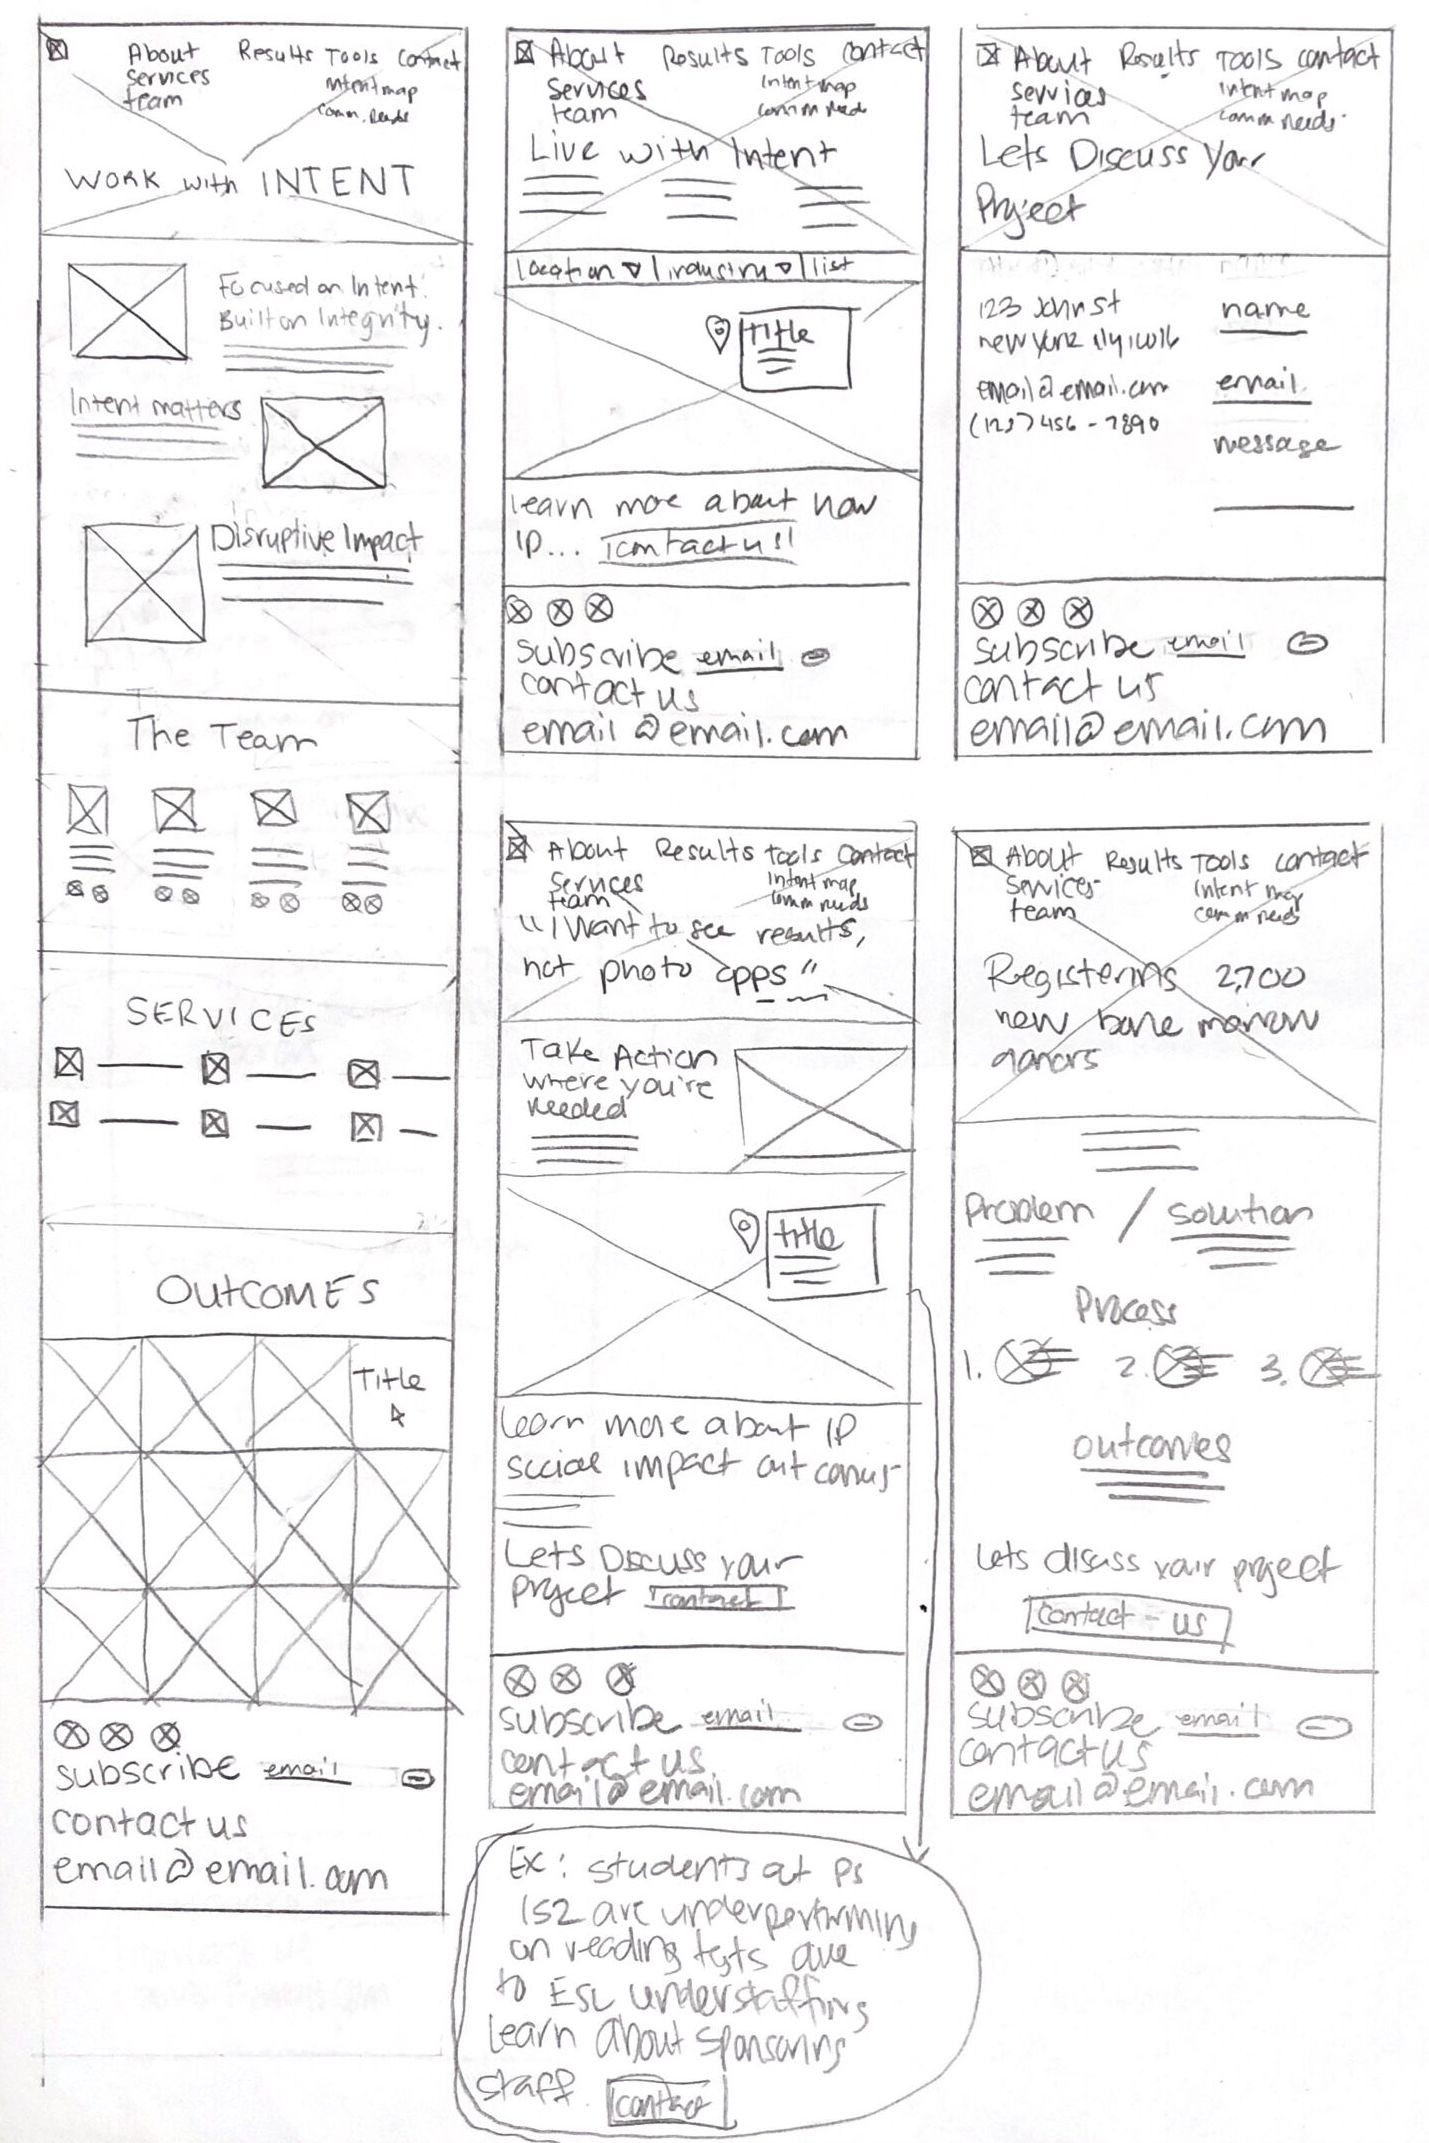 About Results Tools Contact
Services
team
Intent map
comm. needs
WORK with INTENT
Focused on Intent.
Built on Integrity.
Intent matters
Disruptive Impact
The Team
SERVICES
OUTCOMES
Title
subscribe email
contact us
email@email.com
About Results Tools Contact
Services
team
Intent map
comm need
Live with Intent
location | industry | list
Title
learn more about how
IP... contact us!
subscribe email
contact us
email@email.com
About Results Tools contact
services
team
Intent map
comm needs
Lets Discuss your
Project
123 John st
new york
email@email.com
456-7890
name
email
message
subscribe email
contact us
email@email.com
About Results Tools Contact
Services
team
Intent map
comm needs
"I Want to see results,
not photo opps"
Take Action
where you're
needed
title
learn more about IP
social impact outcomes
Lets Discuss your
project contact
subscribe email
contact us
email@email.com
Ex: students at PS
152 are underperforming
on reading tests due
to ESL understaffing
Learn about sponsoring
staff. contact
About Results Tools contact
services
team
Intent map
comm needs
Registering 2,700
new bone marrow
donors
Problem / solution
Process
1. 2. 3.
outcomes
Lets discuss your project
contact-us
subscribe email
contact us
email@email.com